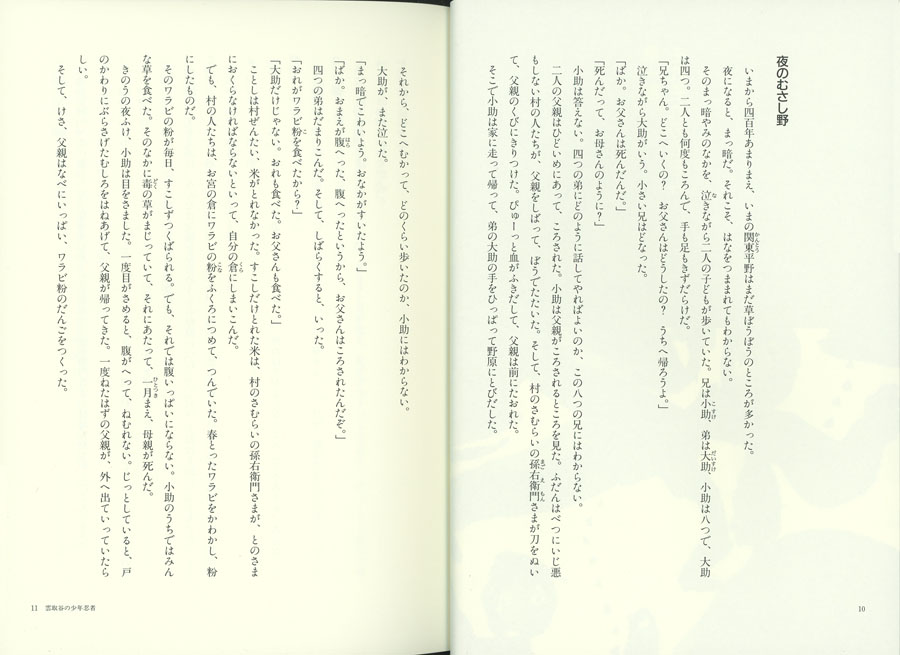 夜のむさし野
いまから四百年あまりまえ、いまの関東平野はまだ草ぼうぼうのところが多かった。
夜になると、まっ暗だ。それこそ、はなをつままれてもわからない。
そのまっ暗やみのなかを、泣きながら二人の子どもが歩いていた。兄は小助、弟は大助、小助は八つで、大助
は四つ。二人とも何度もころんで、手も足もきずだらけだ。
「兄ちゃん。どこへいくの？　お父さんはどうしたの？　うちへ帰ろうよ。」
泣きながら大助がいう。小さい兄はどなった。
「ばか。お父さんは死んだんだ。」
「死んだって、お母さんのように？」
小助は答えない。四つの弟にどのように話してやればよいのか、この八つの兄にはわからない。
二人の父親はひどいめにあって、ころされた。小助は父親がころされるところを見た。ふだんはべつにいじ悪
もしない村の人たちが、父親をしばって、ぼうでたたいた。そして、村のさむらいの孫右衛門さまが刀をぬい
て、父親のくびにきりつけた。ぴゅーっと血がふきだして、父親は前にたおれた。
そこで小助は家に走って帰って、弟の大助の手をひっぱって野原にとびだした。
10
それから、どこへむかって、どのくらい歩いたのか、小助にはわからない。
大助が、また泣いた。
「まっ暗でこわいよう。おなかがすいたよう。」
「ばか。おまえが腹へった、腹へったというから、お父さんはころされたんだぞ。」
四つの弟はだまりこんだ。そして、しばらくすると、いった。
「おれがワラビ粉を食べたから？」
「大助だけじゃない。おれも食べた。お父さんも食べた。」
ことしは村ぜんたい、米がとれなかった。すこしだけとれた米は、村のさむらいの孫右衛門さまが、とのさま
におくらなければならないといって、自分の倉にしまいこんだ。
でも、村の人たちは、お宮の倉にワラビの粉をふくろにつめて、つんでいた。春とったワラビをかわかし、粉
にしたものだ。
そのワラビの粉が毎日、すこしずつくばられる。でも、それでは腹いっぱいにならない。小助のうちではみん
な草を食べた。そのなかに毒の草がまじっていて、それにあたって、一月まえ、母親が死んだ。
きのうの夜ふけ、小助は目をさました。一度目がさめると、腹がへって、ねむれない。じっとしていると、戸
のかわりにぶらさげたむしろをはねあげて、父親が帰ってきた。一度ねたはずの父親が、外へ出ていっていたら
しい。
そして、けさ、父親はなべにいっぱい、ワラビ粉のだんごをつくった。
11　雲取谷の少年忍者